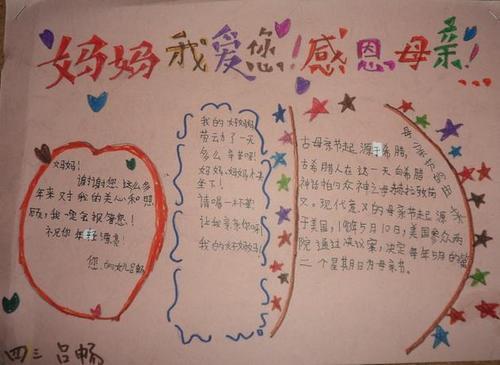 妈妈我爱您!感恩母亲!
妈妈!
谢谢您这么多
年来对我的关心和照
顾,我一定会报答您!
祝您年轻漂亮!
您的女儿吕畅
我的好妈妈
劳动了一天
多么辛苦呀!
妈妈,妈妈快
坐下!
请喝一杯茶!
让我亲亲你吧!
我的好妈妈!
母亲节的由来
古母亲节起源于希腊,
古希腊人在这一天向希腊
神话中的众神之母赫拉致敬
义。现代意义的母亲节起源
于美国,5月10日,美国参众两
院通过决议案,决定每年5月的第
二个星期日为母亲节。
四三 吕畅